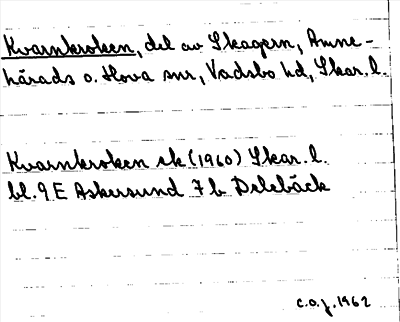 Kvarnkroken, del av Skagern, Amne-
härads o. Hova snr, Vadsbo hd, Skar. l.
Kvarnkroken ek (1960) Skar. l.
bl. 9 E Askersund 7 b Delebäck
c.o.j. 1962